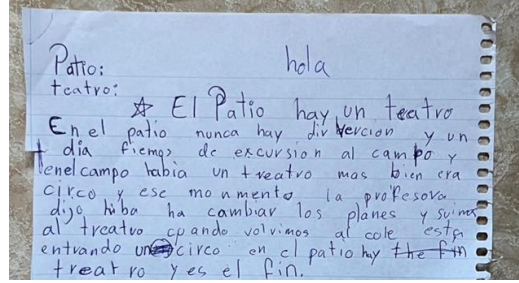 Patio: hola
teatro:
☆ El Patio hay un teatro
En el patio nunca hay divercion y un
dia fiemos de excursion al campo y
enel campo habia un treatro mas bien era
circo y ese monmento la profesora
dijo hiba ha cambiar los planes y suimos
al treatro cuando volvimos al cole esta
entrando un circo en el patio hay the fin
treatro y es el fin.